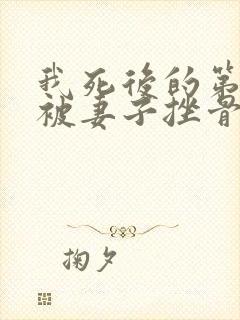 我死後的第
被妻子挫骨
掬夕